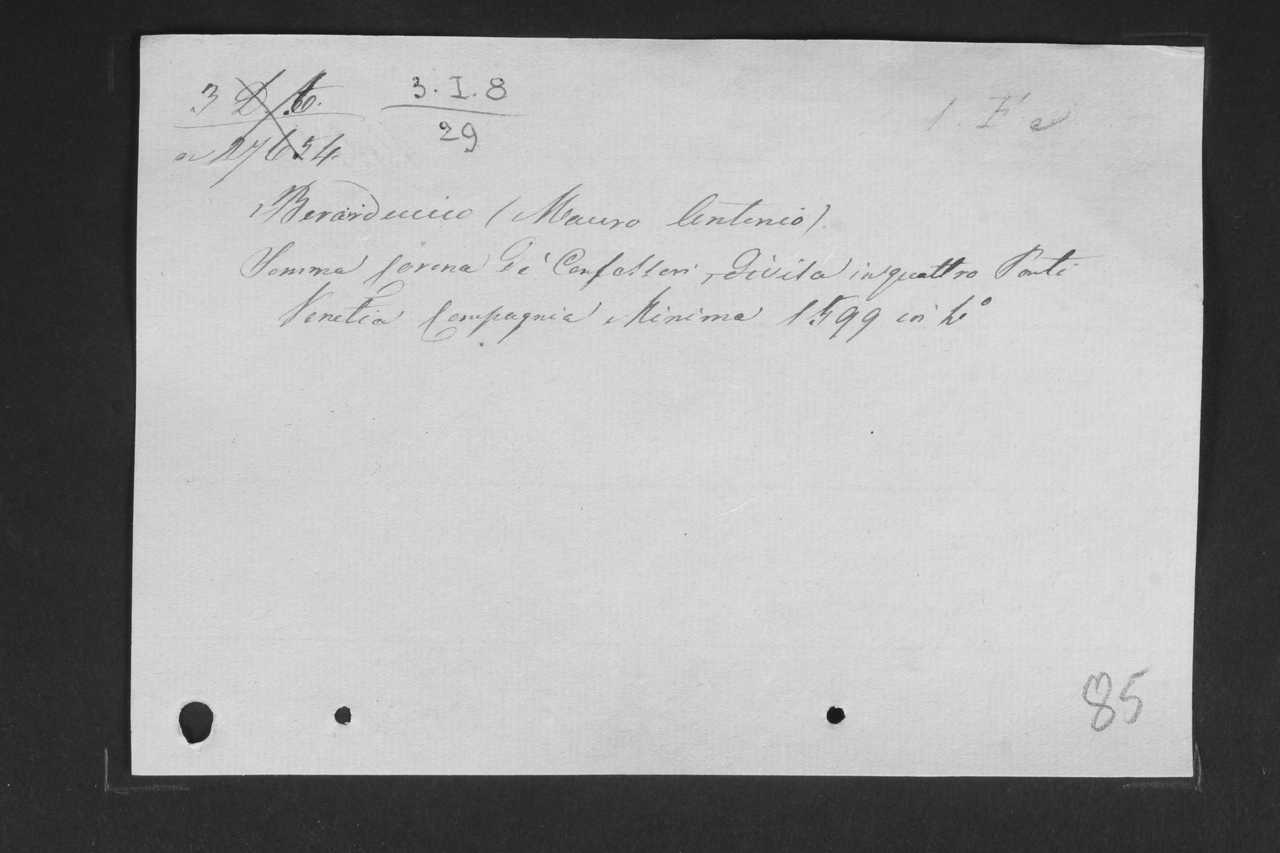 3. I. 8
29
Berarduccio (Mauro Antonio)
Somma Corona de' Confessori, divisa in quattro Parti
Venetia Compagnia Minima 1599 in 4°
85